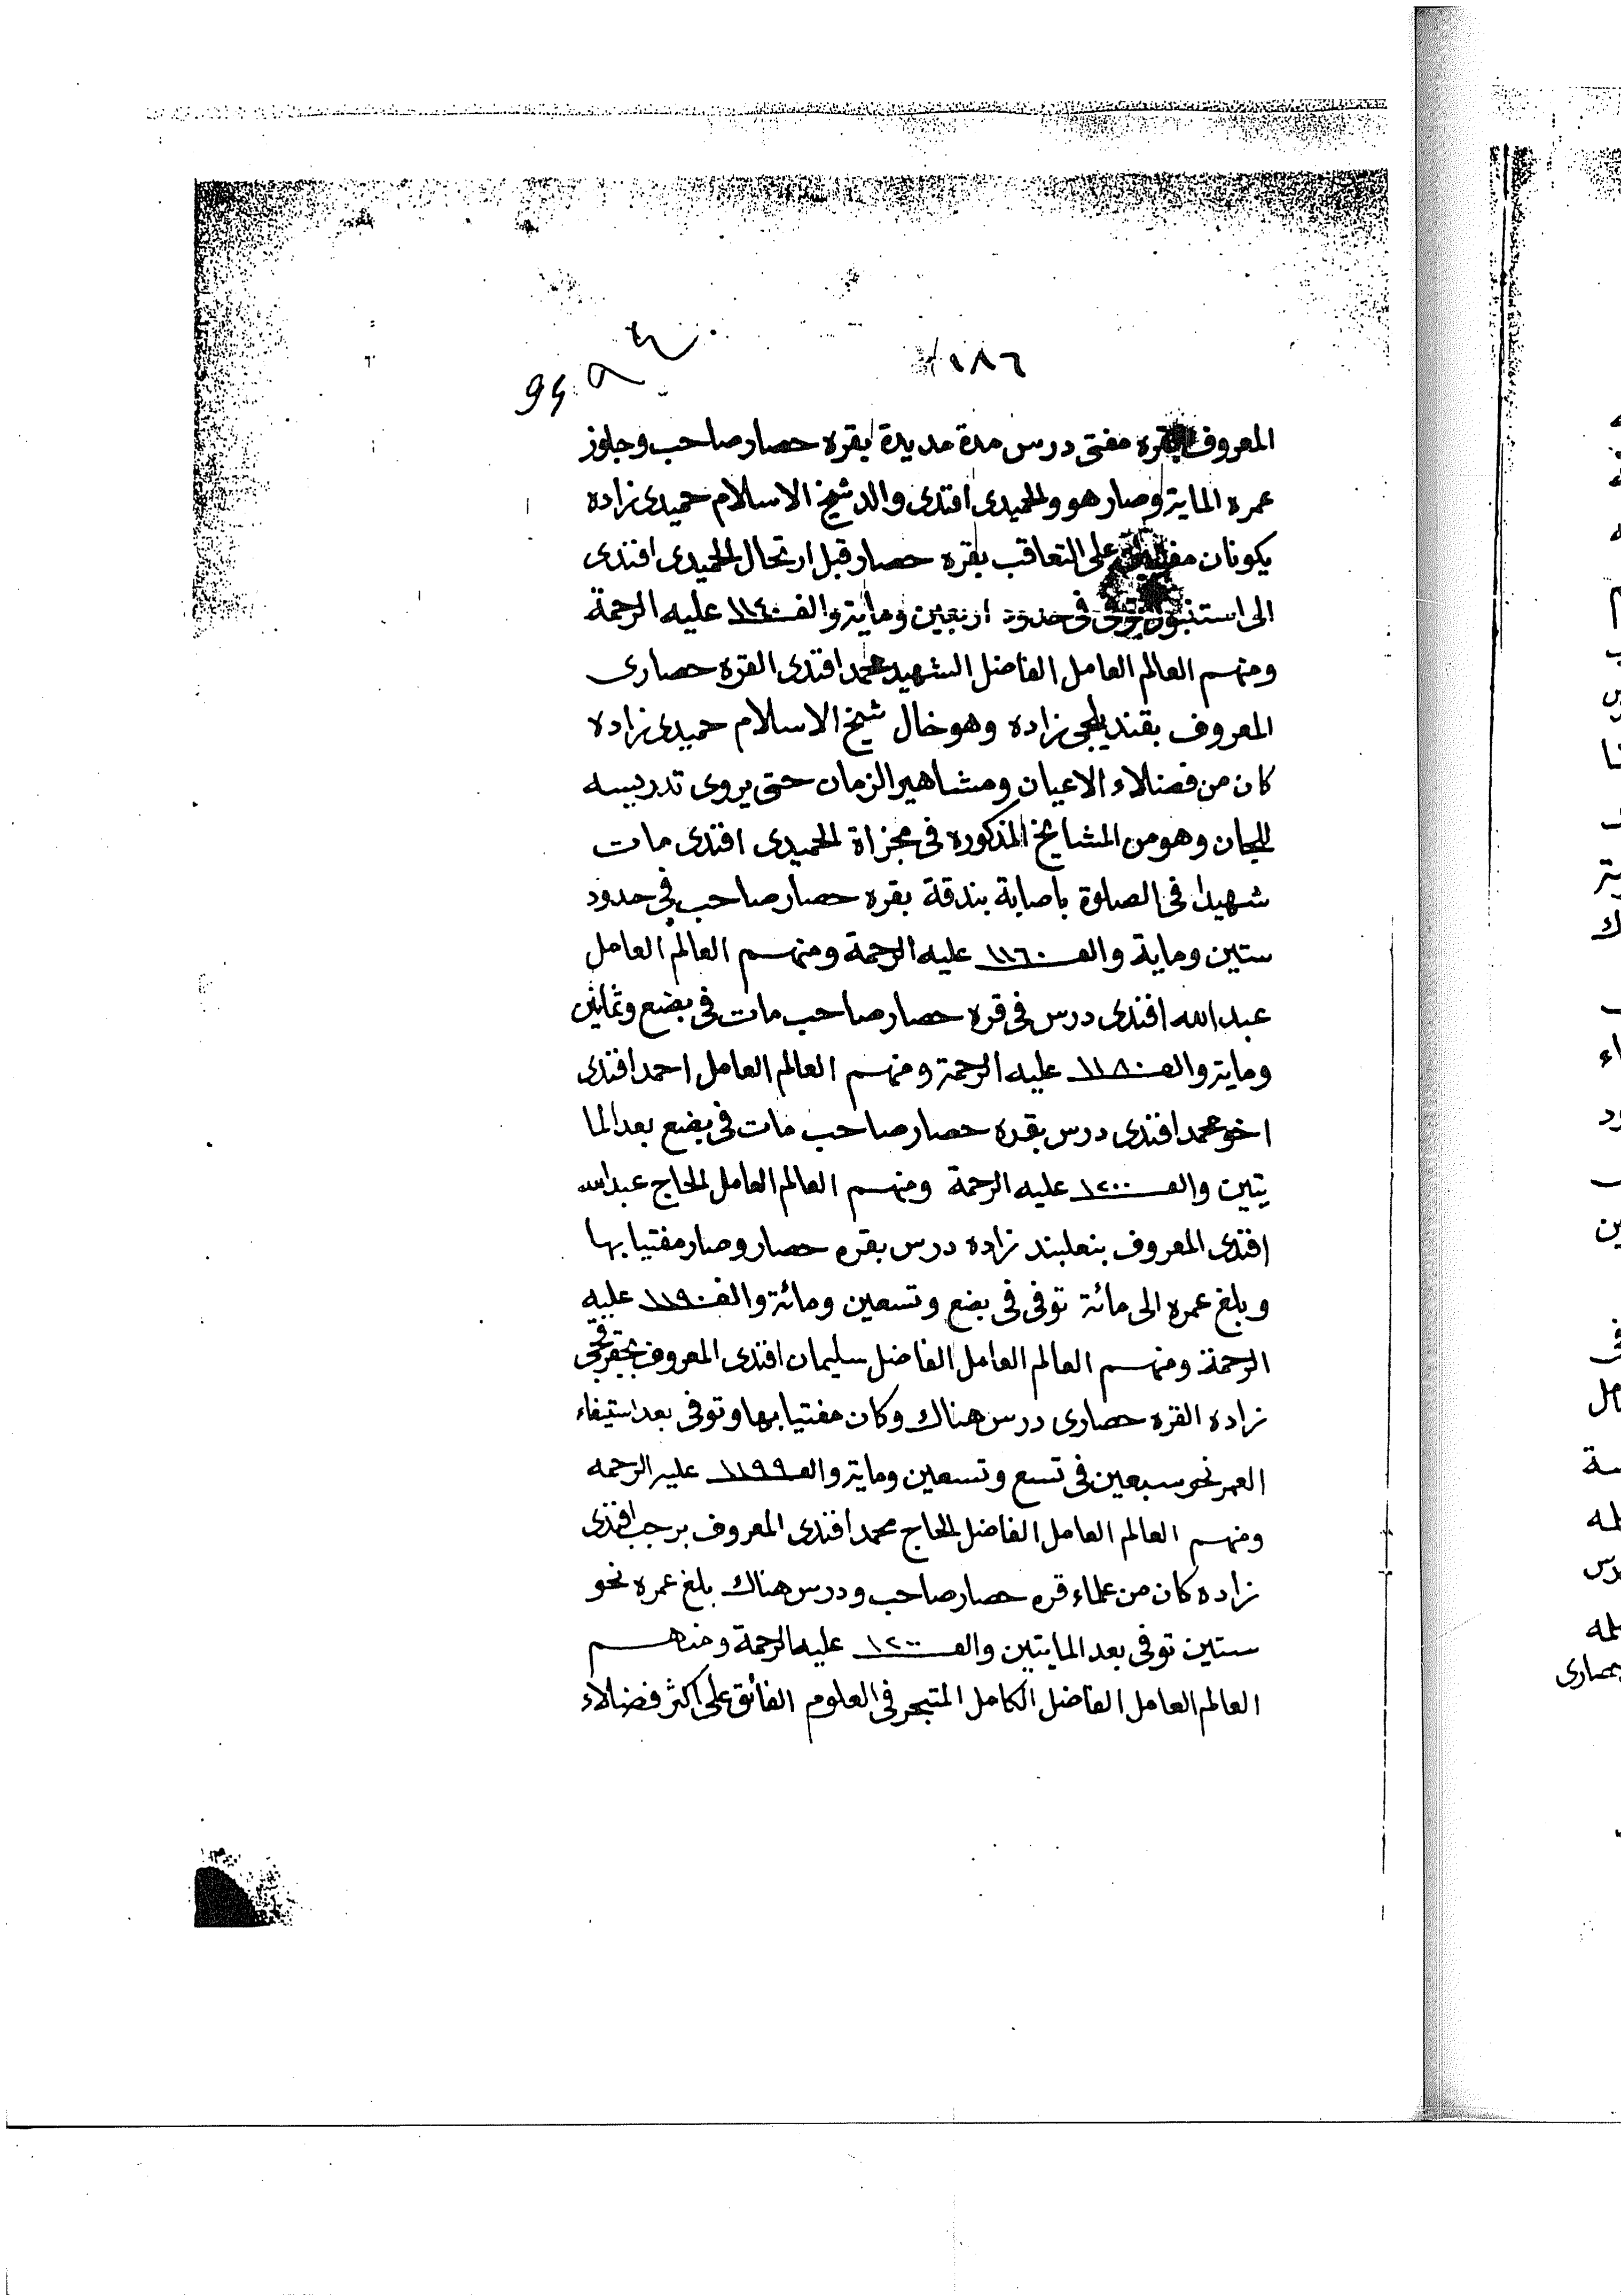 ١٨٦
المعروف بقره مفتى درس مدة مديدة بقره حصار صاحب وجاوز
عمره الماية وصار هو والحميدى افندى والد شيخ الاسلام حميدى زاده
يكونان على التعاقب بقره حصار قبل ارتحال الحميدى افندى
الى استنبول توفى فى حدود اربعين وماية والف ١١٤٠ عليه الرحمة
ومنهم العالم العامل الفاضل الشهيد محمد افندى القره حصارى
المعروف بقنديلجى زاده وهو خال شيخ الاسلام حميدى زاده
كان من فضلاء الاعيان ومشاهير الزمان حتى يروى تدريسه
للجان وهو من المشايخ المذكوره فى مجزاة الحميدى افندى مات
شهيدا فى الصلوة باصابة بندقة بقره حصار صاحب فى حدود
ستين وماية والف ١١٦٠ عليه الرحمة ومنهم العالم العامل
عبد الله افندى درس فى قره حصار صاحب مات فى بضع وثمانين
وماية والف ١١٨٠ عليه الرحمة ومنهم العالم العامل احمد افندى
اخو محمد افندى درس بقره حصار صاحب مات فى بضع بعد الما
يتين والف ١٢٠٠ عليه الرحمة ومنهم العالم العامل الحاج عبد الله
افندى المعروف بنعلبند زاده درس بقره حصار وصار مفتيا بها
وبلغ عمره الى مائة توفى فى بضع وتسعين ومائة والف ١١٩٠ عليه
الرحمة ومنهم العالم العامل الفاضل سليمان افندى المعروف
زاده القره حصارى درس هناك وكان مفتيا بها وتوفى بعد استيفاء
العمر نحو سبعين فى تسع وتسعين وماية والف ١١٩٩ عليه الرحمه
ومنهم العالم العامل الفاضل الحاج محمد افندى المعروف برجب افندى
زاده كان من علماء قره حصار صاحب ودرس هناك بلغ عمره نحو
ستين توفى بعد المايتين والف ١٢٠٠ عليه الرحمة ومنهم
العالم العامل الفاضل الكامل المتبحر فى العلوم الفائق على اكثر فضلاء